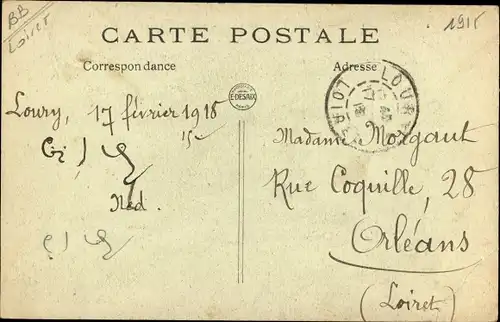 BB
Loiret
1915
CARTE POSTALE
Correspondance
Adresse
E·DESAIX
Loury, 17 février 1915
15
Ned.
Madame Morgaut
Rue Coquille, 28
Orléans
(Loiret)